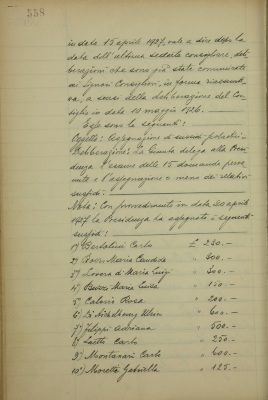 558
in data 15 aprile 1927, vale a dire dopo la
data dell'ultima seduta consigliare, deli-
berazioni che sono già state comunicate
ai Signori Consiglieri, in forma riassunti-
va, a sensi della deliberazione del Con-
siglio in data 10 maggio 1926.
Esse sono le seguenti:
Oggetto: Assegnazione di sussidi
Deliberazione: La Giunta delega alla Presi-
denza l'esame delle 15 domande perve-
nute e l'assegnazione a mano dei relativi
sussidi.
Nota: Con provvedimento in data 20 aprile
1927 la Presidenza ha assegnato i seguenti
sussidi:
1°) Bertolini Carlo £ 250.-
2°) Maria Candida " 400.-
3°) di Maria Luigi " 300.-
4°) Maria Luisa " 150.-
5°) Calovio Rosa " 200.-
6°) " 600.-
7°) Filippi Adriana " 500.-
8°) Carlo " 250.-
9°) Montanari Carlo " 600.-
10°) Moretta Gabriella " 125.-